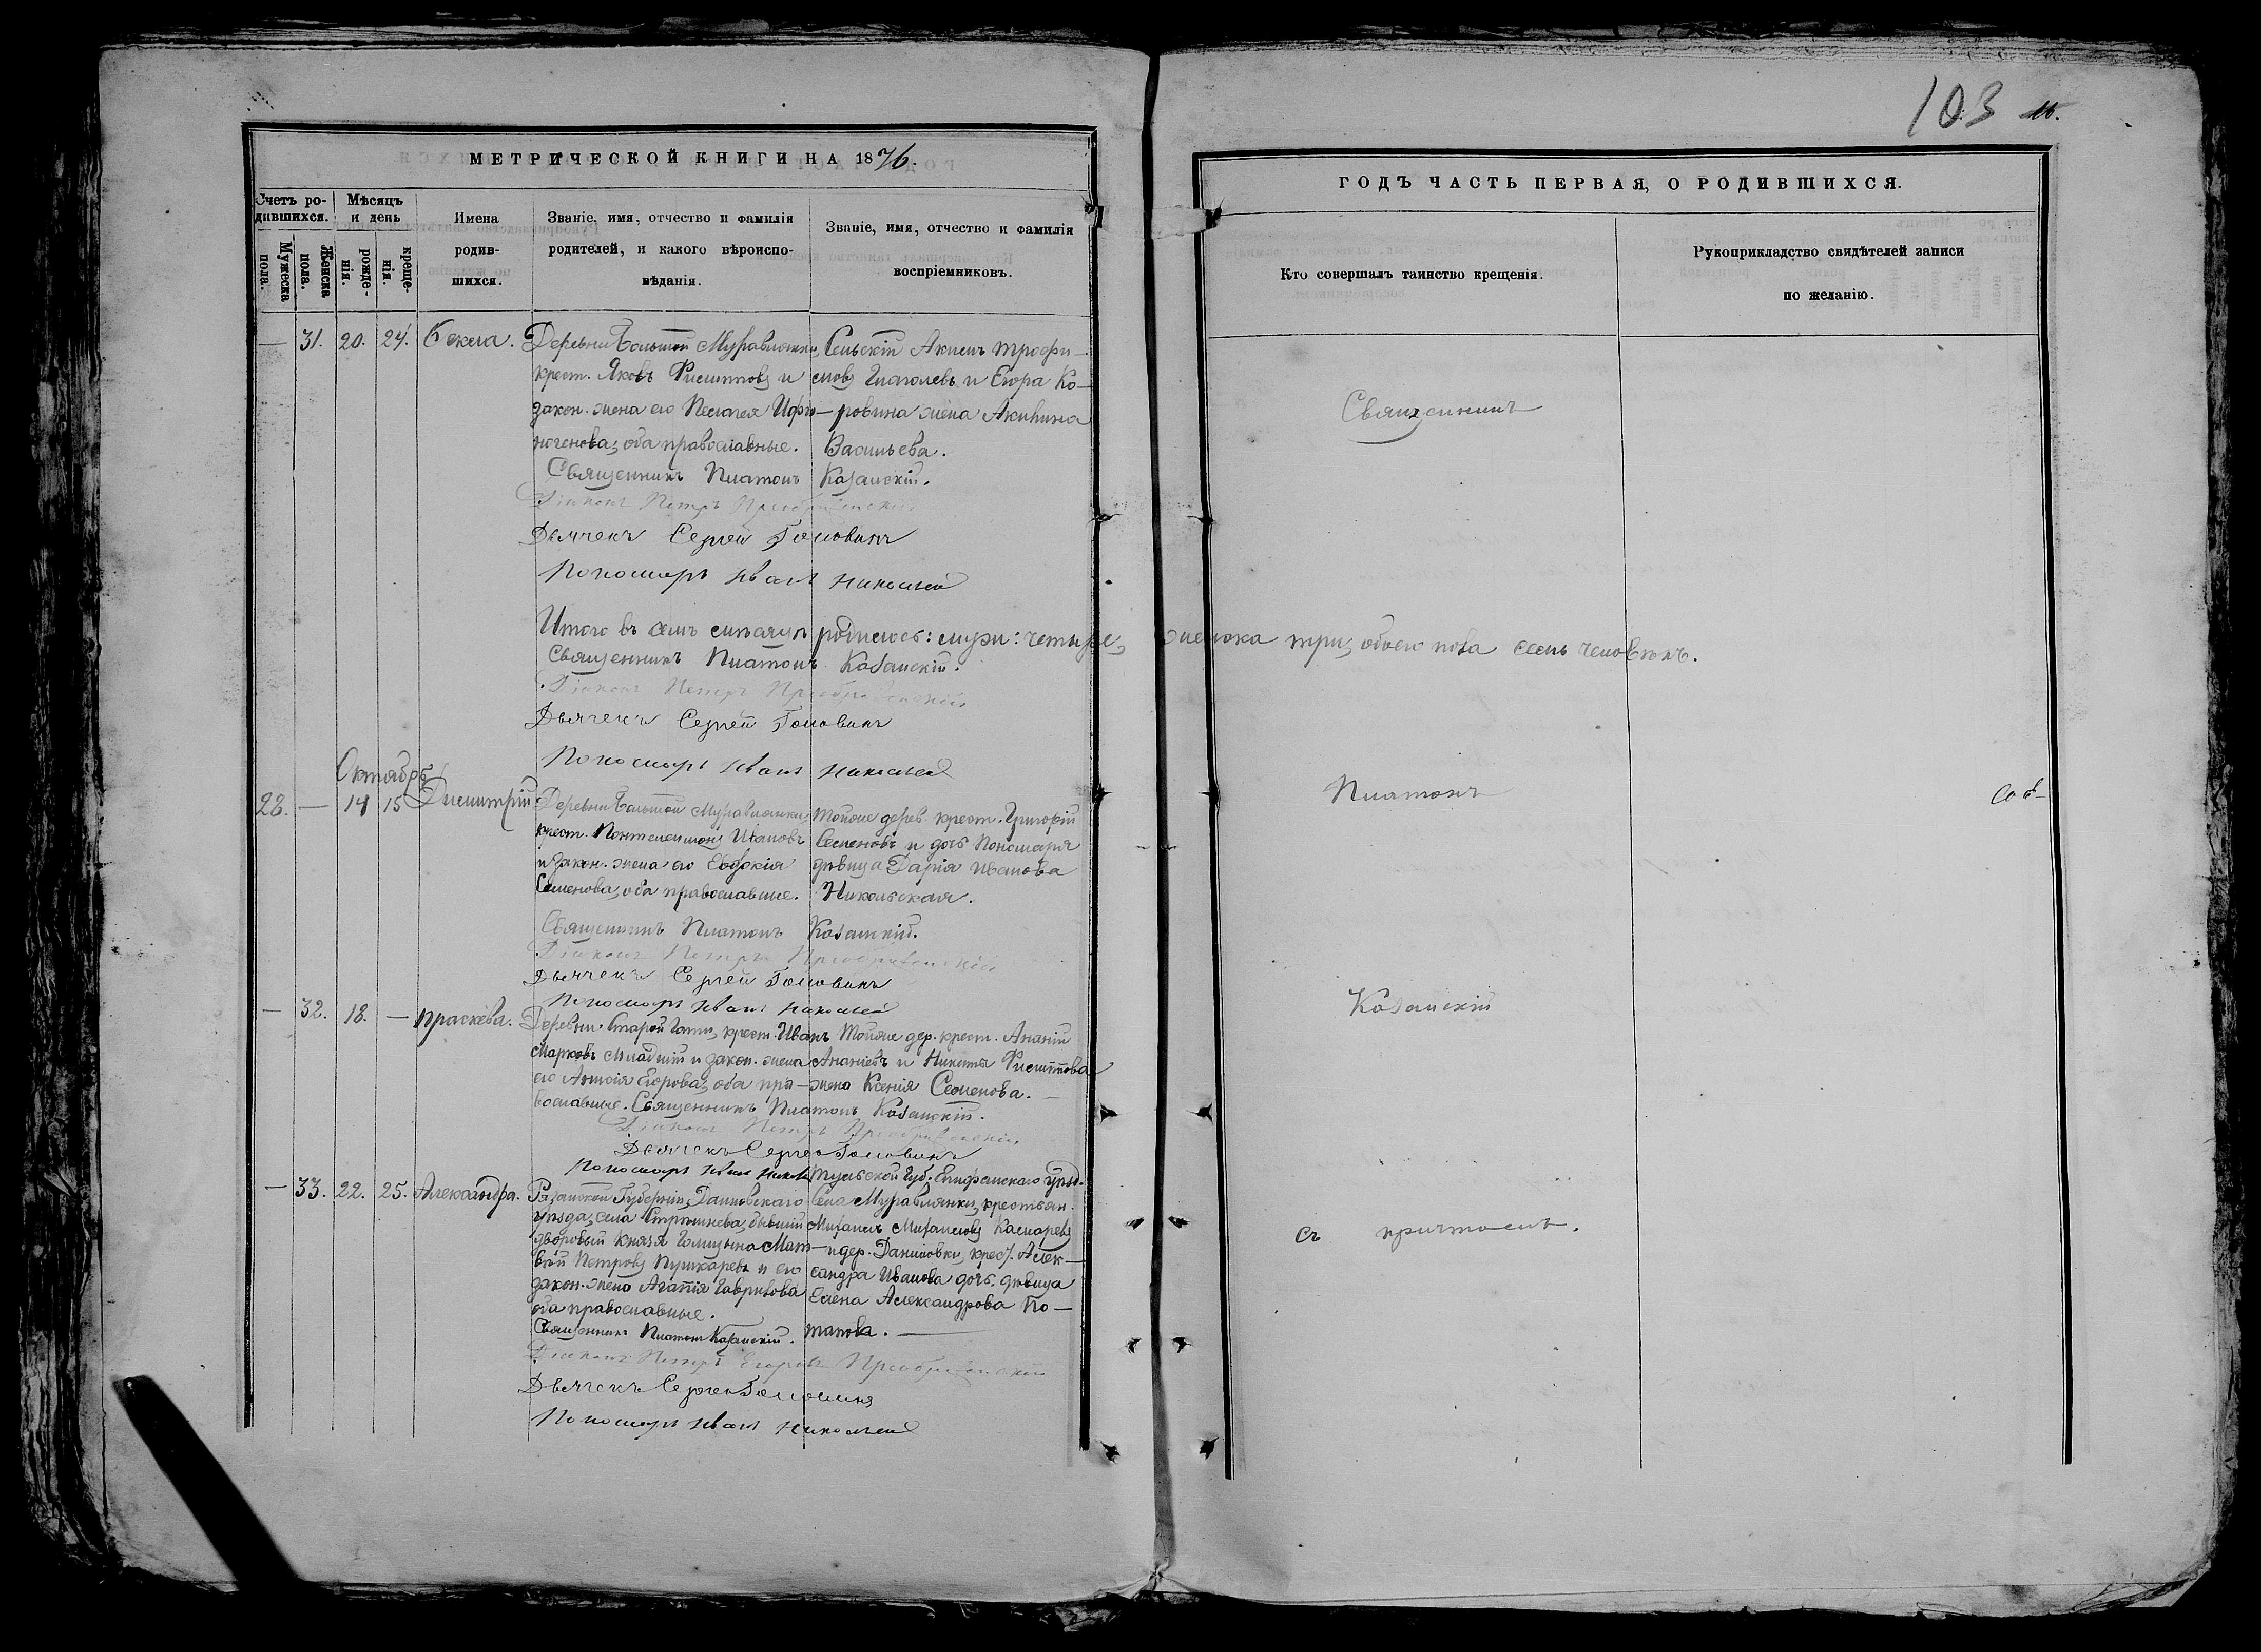 103
МЕТРИЧЕСКОЙ КНИГИ НА 1876.
Счетъ ро-
дившихся.
Мужеска пола.
Женска пола.
Мѣсяцъ
и день
рожде-
нія.
креще-
нія.
Имена
родив-
шихся.
Званіе, имя, отчество и фамилія
родителей, и какого вѣроиспо-
вѣданія.
Званіе, имя, отчество и фамилія
воспріемниковъ.
— 31. 20. 24. Ѳекла.
Деревни Большой Муравлянки,
крест. Яковъ Филиповъ и
закон. жена его Пелагея
ногенова, оба православные.
Сельскій Акимъ Трофи-
мовъ Глаголевъ и Егора Ко-
ровина жена Акилина
Васильева.
Священникъ Платонъ Казанскій.
Діаконъ Петръ Преображенскій
Дьячекъ Сергей Головинъ
Пономарь Иванъ Никольскій
Итого въ семъ мѣсяцѣ родилось: муж: четыре,
женска три, обоего пола семь человѣкъ.
Священникъ Платонъ Казанскій.
Діаконъ Петръ Преображенскій
Дьячекъ Сергей Головинъ
Пономарь Иванъ Никольскій
Октябрь
28. — 14 15 Димитрій
Деревни Большой Муравлянки,
крест. Пантелеимонъ Ивановъ
и закон. жена его Евдокія
Семенова, оба православные.
Тойже дерев. крест. Григорій
Семеновъ и дочь Пономаря
дѣвица Дарія Иванова
Никольская.
Священникъ Платонъ Казанскій.
Діаконъ Петръ Преображенскій
Дьячекъ Сергей Головинъ
Пономарь Иванъ Никольскій
— 32. 18. — Праскева.
Деревни Старой Гати, крест. Иванъ
Марковъ Младшій и закон. жена
его Анисія Егорова, оба пра-
вославные.
Тойже дер. крест. Ананій
Ананіевъ и Никиты Филиппова
жена Ксенія Семенова.
Священникъ Платонъ Казанскій.
Діаконъ Петръ Преображенскій
Дьячекъ Сергей Головинъ
Пономарь Иванъ
— 33. 22. 25. Александра.
Рязанской Губерніи, Данковскаго
уѣзда, села Стрѣшнева, бывшій
дворовый князя Голицына Мат-
вѣй Петровъ Пушкаревъ и его
закон. жена Агапія Гаврилова
оба православные.
Тульской Губ. Епифанскаго уѣзд.
села Муравлянки, крестьян.
Михаилъ Михаиловъ
и дер. Даниловки, крест. Алек-
сандра Иванова дочь, дѣвица
Елена Александрова По-
тапова.
Священникъ Платонъ Казанскій.
Діаконъ Петръ Егоровъ Преображенскій
Дьячекъ Сергей Головинъ
Пономарь Иванъ Никольскій
ГОДЪ ЧАСТЬ ПЕРВАЯ, О РОДИВШИХСЯ.
Кто совершалъ таинство крещенія.
Рукоприкладство свидѣтелей записи
по желанію.
Священникъ
Платонъ
Соб-
Казанскій
съ причтомъ.